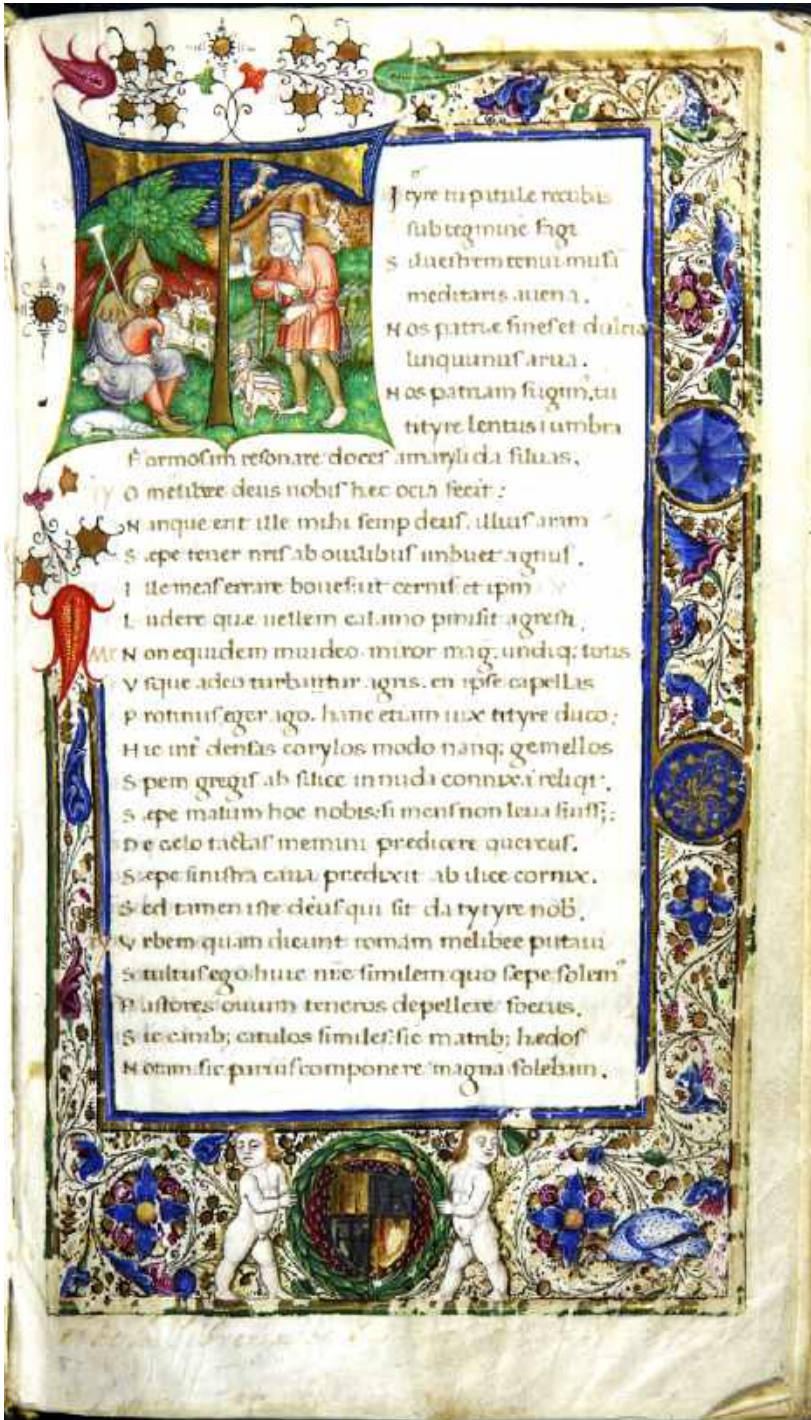 Tytyre tu patule recubãs
sub tegmine fagi
Siluestrem tenui musã
meditaris auena.
Nos patriæ fines et dulcia
linquimus arua.
Nos patriam fugim⁹. tu
tityre lentus ĩ umbra
Formosam resonare doces amaryllida siluas.
O melibee deus nobis hæc ocia fecit:
Nanque erit ille mihi semp deus. illius aram
Sæpe tener nris ab ouilibus imbuet agnus.
Ille meas errare boues: ut cernis: et ipm
Ludere quæ uellem calamo pmisit agresti.
ME Non equidem inuideo. miror mag. undiq; totis
Vsque adeo turbantur agris. en ipse capellas
Protinus eger ago. hanc etiam uix tityre duco:
Hic int densas corylos modo nanq; gemellos
Spem gregis ah silice in nuda connixa reliqt.
Sæpe malum hoc nobis: si mens non leua fuiss;:
De celo tactas memini predicere quercus.
Sæpe sinistra caua predixit ab ilice cornix.
Sed tamen iste deus qui sit da tytyre nob.
TY Vrbem quam dicunt romam melibee putaui
Stultus ego huic nre similem quo sæpe solem⁹
Pastores ouium teneros depellere foetus.
Sic canib; catulos similes: sic matrib; hædos
Noram. sic paruis componere magna solebam.